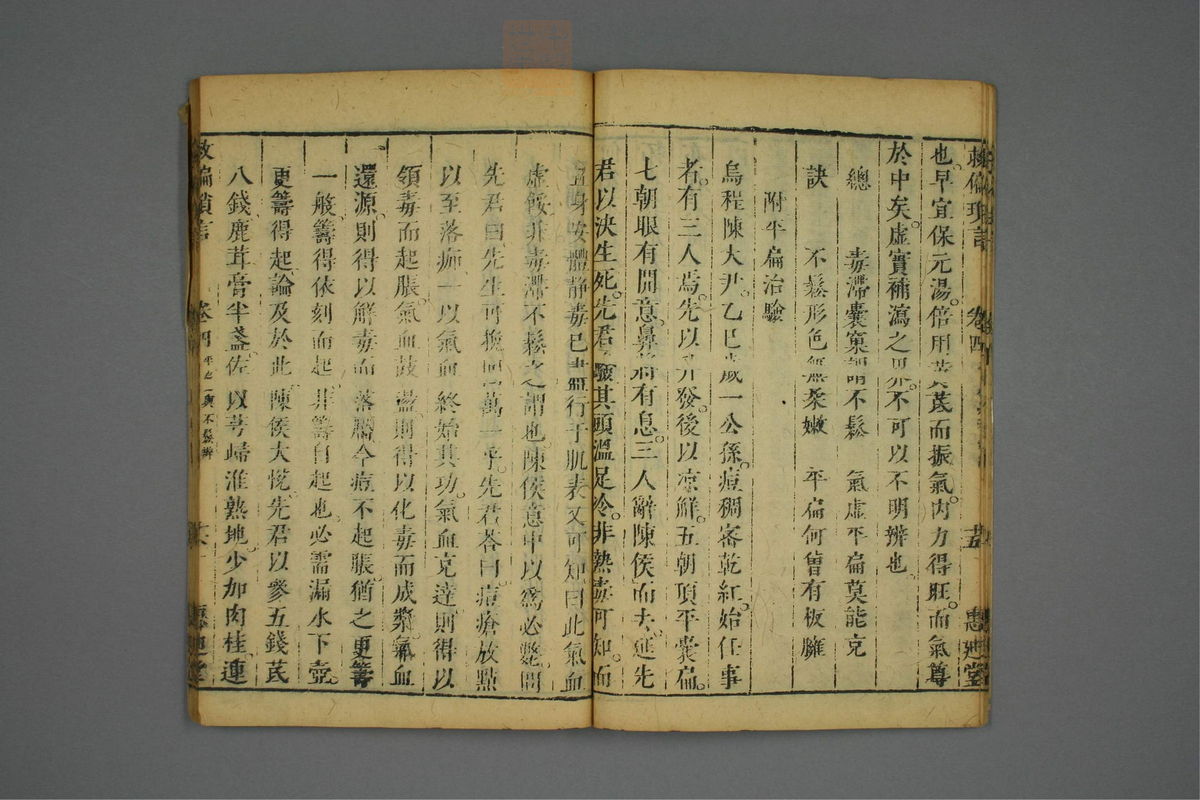 也。早宜保元湯。倍用黃芪而振氣。內力得旺。而氣尊
於中矣。虛實補瀉之界。不可以不明辨也。
總 毒滯囊窠謂不鬆 氣虛平扁莫能克
訣 不鬆形色無柔嫩 平扁何曾有板臃
附平扁治驗
烏程陳大尹。乙巳歲一公孫。痘稠密乾紅。始任事
者。有三人焉。先以升發。後以凉鮮。五朝頂平囊扁。
七朝眼有開意。鼻將有息。三人辭陳侯而去。延先
君以決生死。先君驗其頭溫足冷。非熱毒可知。而
溫身安體靜毒已行于肌表又可知曰此氣血
虛餒非毒滯不鬆之謂也陳侯意中以為必斃問
先君曰先生可挽回萬一乎。先君荅曰痘瘡放點
以至落痂一以氣血終始其功。氣血克達則得以
領毒而起脹。氣血鼓盪則得以化毒而成漿。氣血
還源則得以解毒而落靨今痘不起脹猶之更籌
一般籌得依刻而起。非籌自起也必需漏水下壺。
更籌得起。論及於此。陳侯大悅。先君以參五錢芪
八錢鹿茸膏半盞佐以芎歸淮熟地。少加肉桂連
救偏瑣言 卷四 不鬆辨